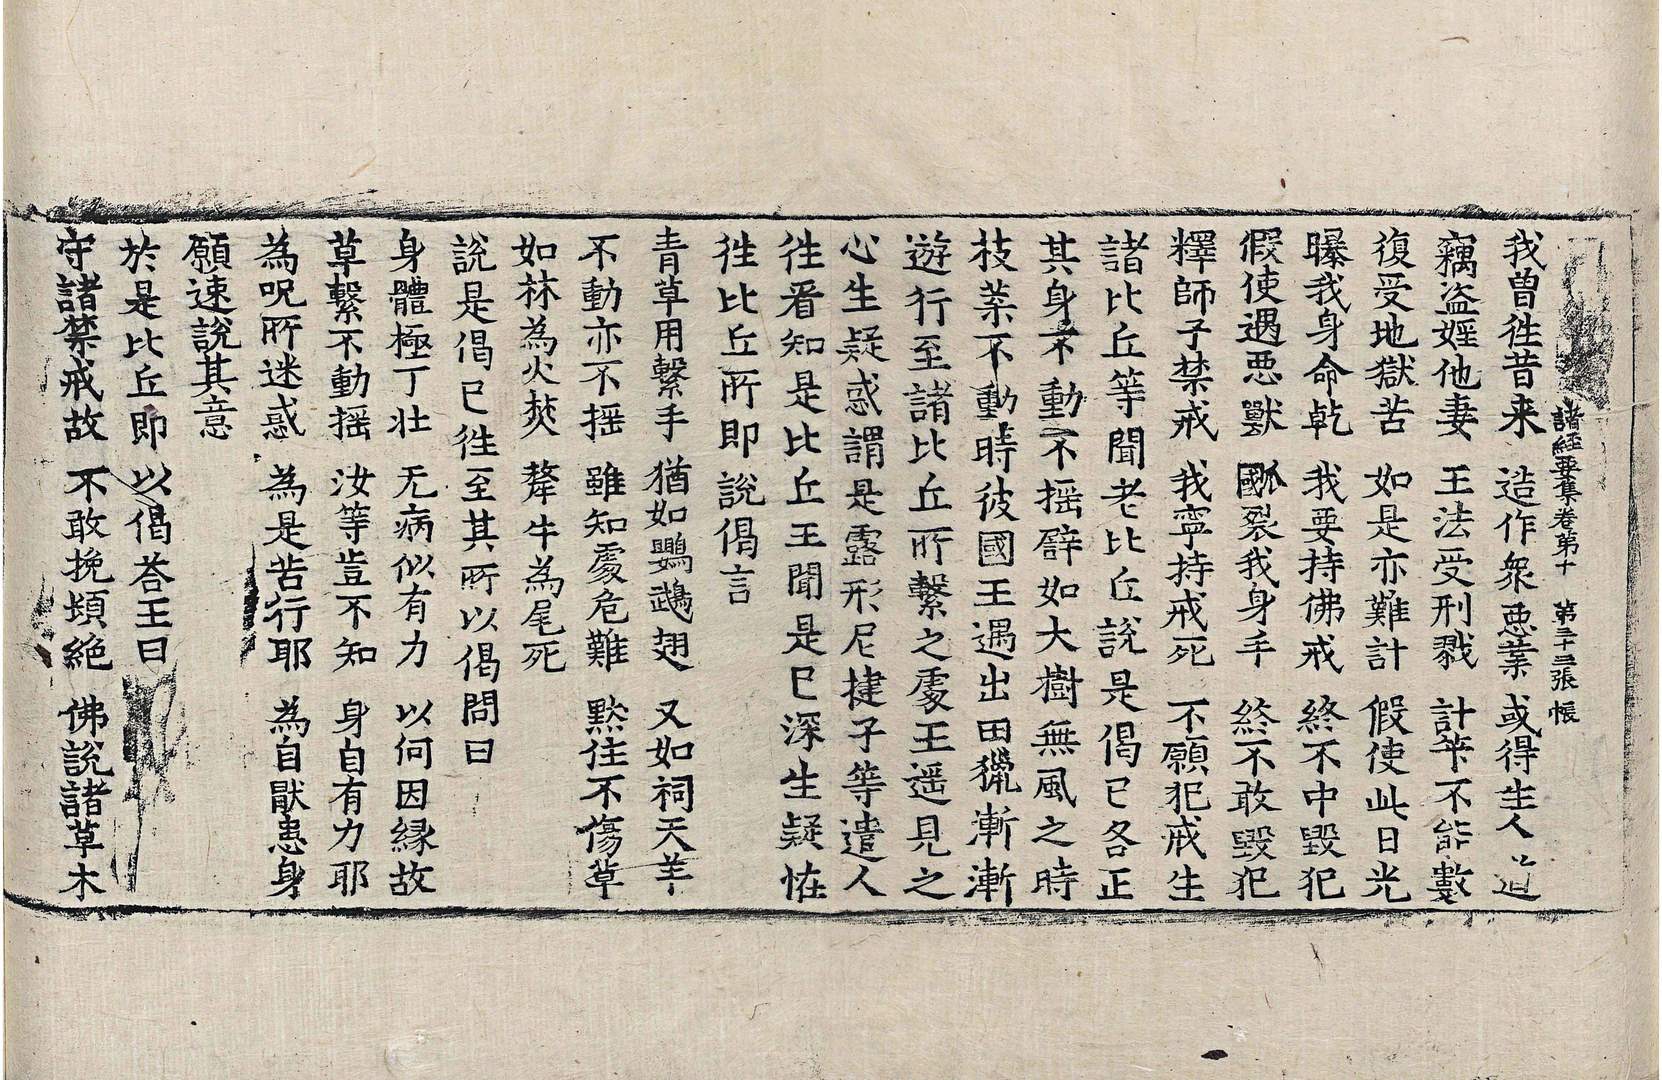 諸經要集卷第十　第三十三張　帳
我曾徃昔来　造作衆惡業　或得生人道
竊盗婬他妻　王法受刑戮　計筭不能數
復受地獄苦　如是亦難計　假使此日光
曝我身命乾　我要持佛戒　終不中毀犯
假使遇惡獸　𤔩裂我身手　終不敢毀犯
釋師子禁戒　我寧持戒死　不願犯戒生
諸比丘等聞老比丘說是偈已各正
其身不動不揺譬如大樹無風之時
枝葉不動時彼國王遇出田獵漸漸
遊行至諸比丘所繫之處王遥見之
心生疑惑謂是露形尼揵子等遣人
徃看知是比丘王聞是已深生疑恠
徃比丘所即說偈言
青草用繫手　猶如鸚鵡翅　又如祠天羊
不動亦不揺　雖知處危難　黙住不傷草
如林為火焚　犛牛為尾死
說是偈已徃至其所以偈問曰
身體極丁壮　无病似有力　以何因縁故
草繫不動揺　汝等豈不知　身自有力耶
為呪所迷惑　為是苦行耶　為自厭患身
願速說其意
於是比丘即以偈荅王曰
守諸禁戒故　不敢挽頓絶　佛說諸草木